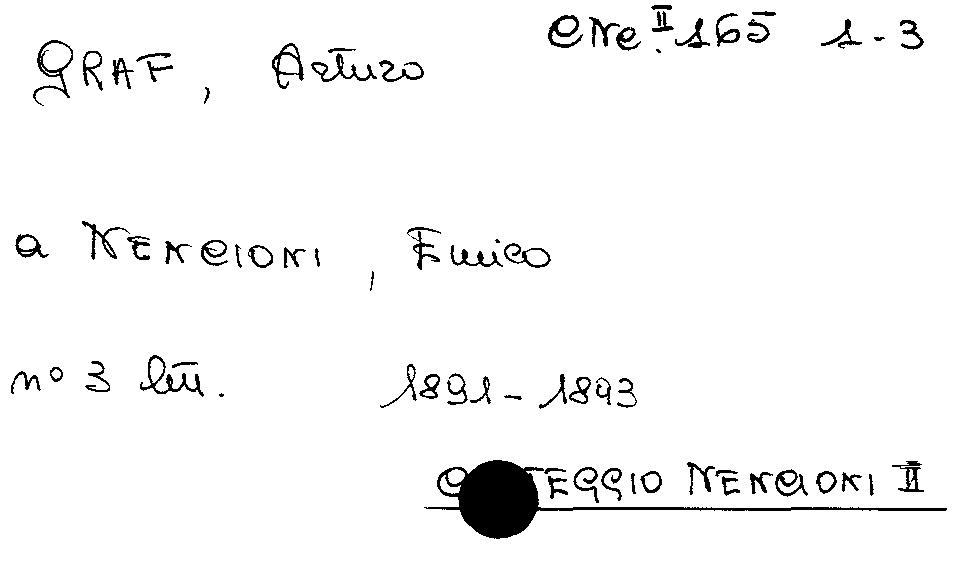 GRAF, Arturo CNe.II.165 1-3
a NENCIONI, Enrico
n° 3 lett. 1891-1893
C TEGGIO NENCIONI II